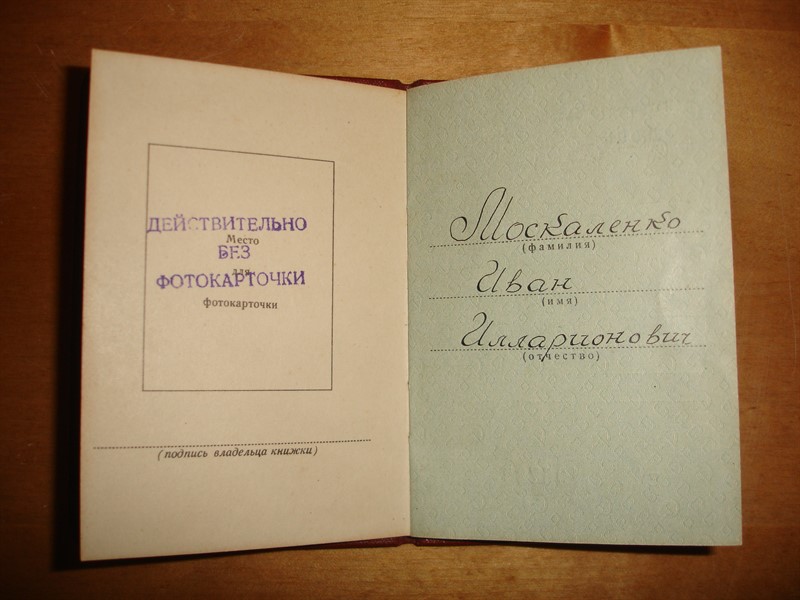 ДЕЙСТВИТЕЛЬНО
Место
БЕЗ
для
ФОТОКАРТОЧКИ
фотокарточки
(подпись владельца книжки)
Москаленко
(фамилия)
Иван
(имя)
Илларионович
(отчество)